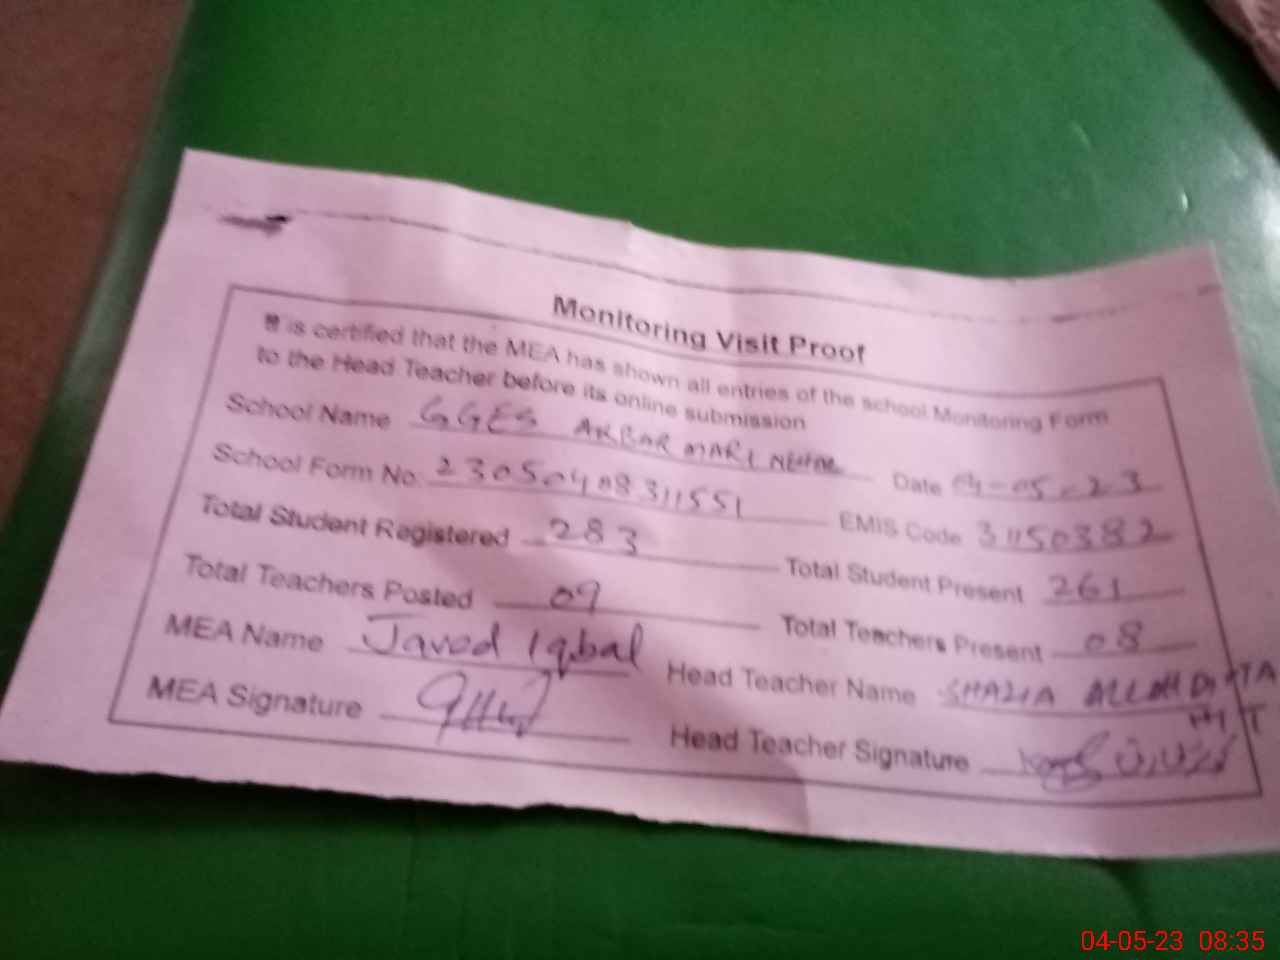 Monitoring Visit Proof
It is certified that the MEA has shown all entries of the school Monitoring Form
to the Head Teacher before its online submission
School Name GGES AKBAR MARI Date 04-05-23
School Form No. 23050408311551 EMIS Code 31150382
Total Student Registered 283 Total Student Present 261
Total Teachers Posted 09 Total Teachers Present 08
MEA Name Javed Iqbal Head Teacher Name SHAZIA ALLAH DITTA
MEA Signature Head Teacher Signature
04-05-23 08:35